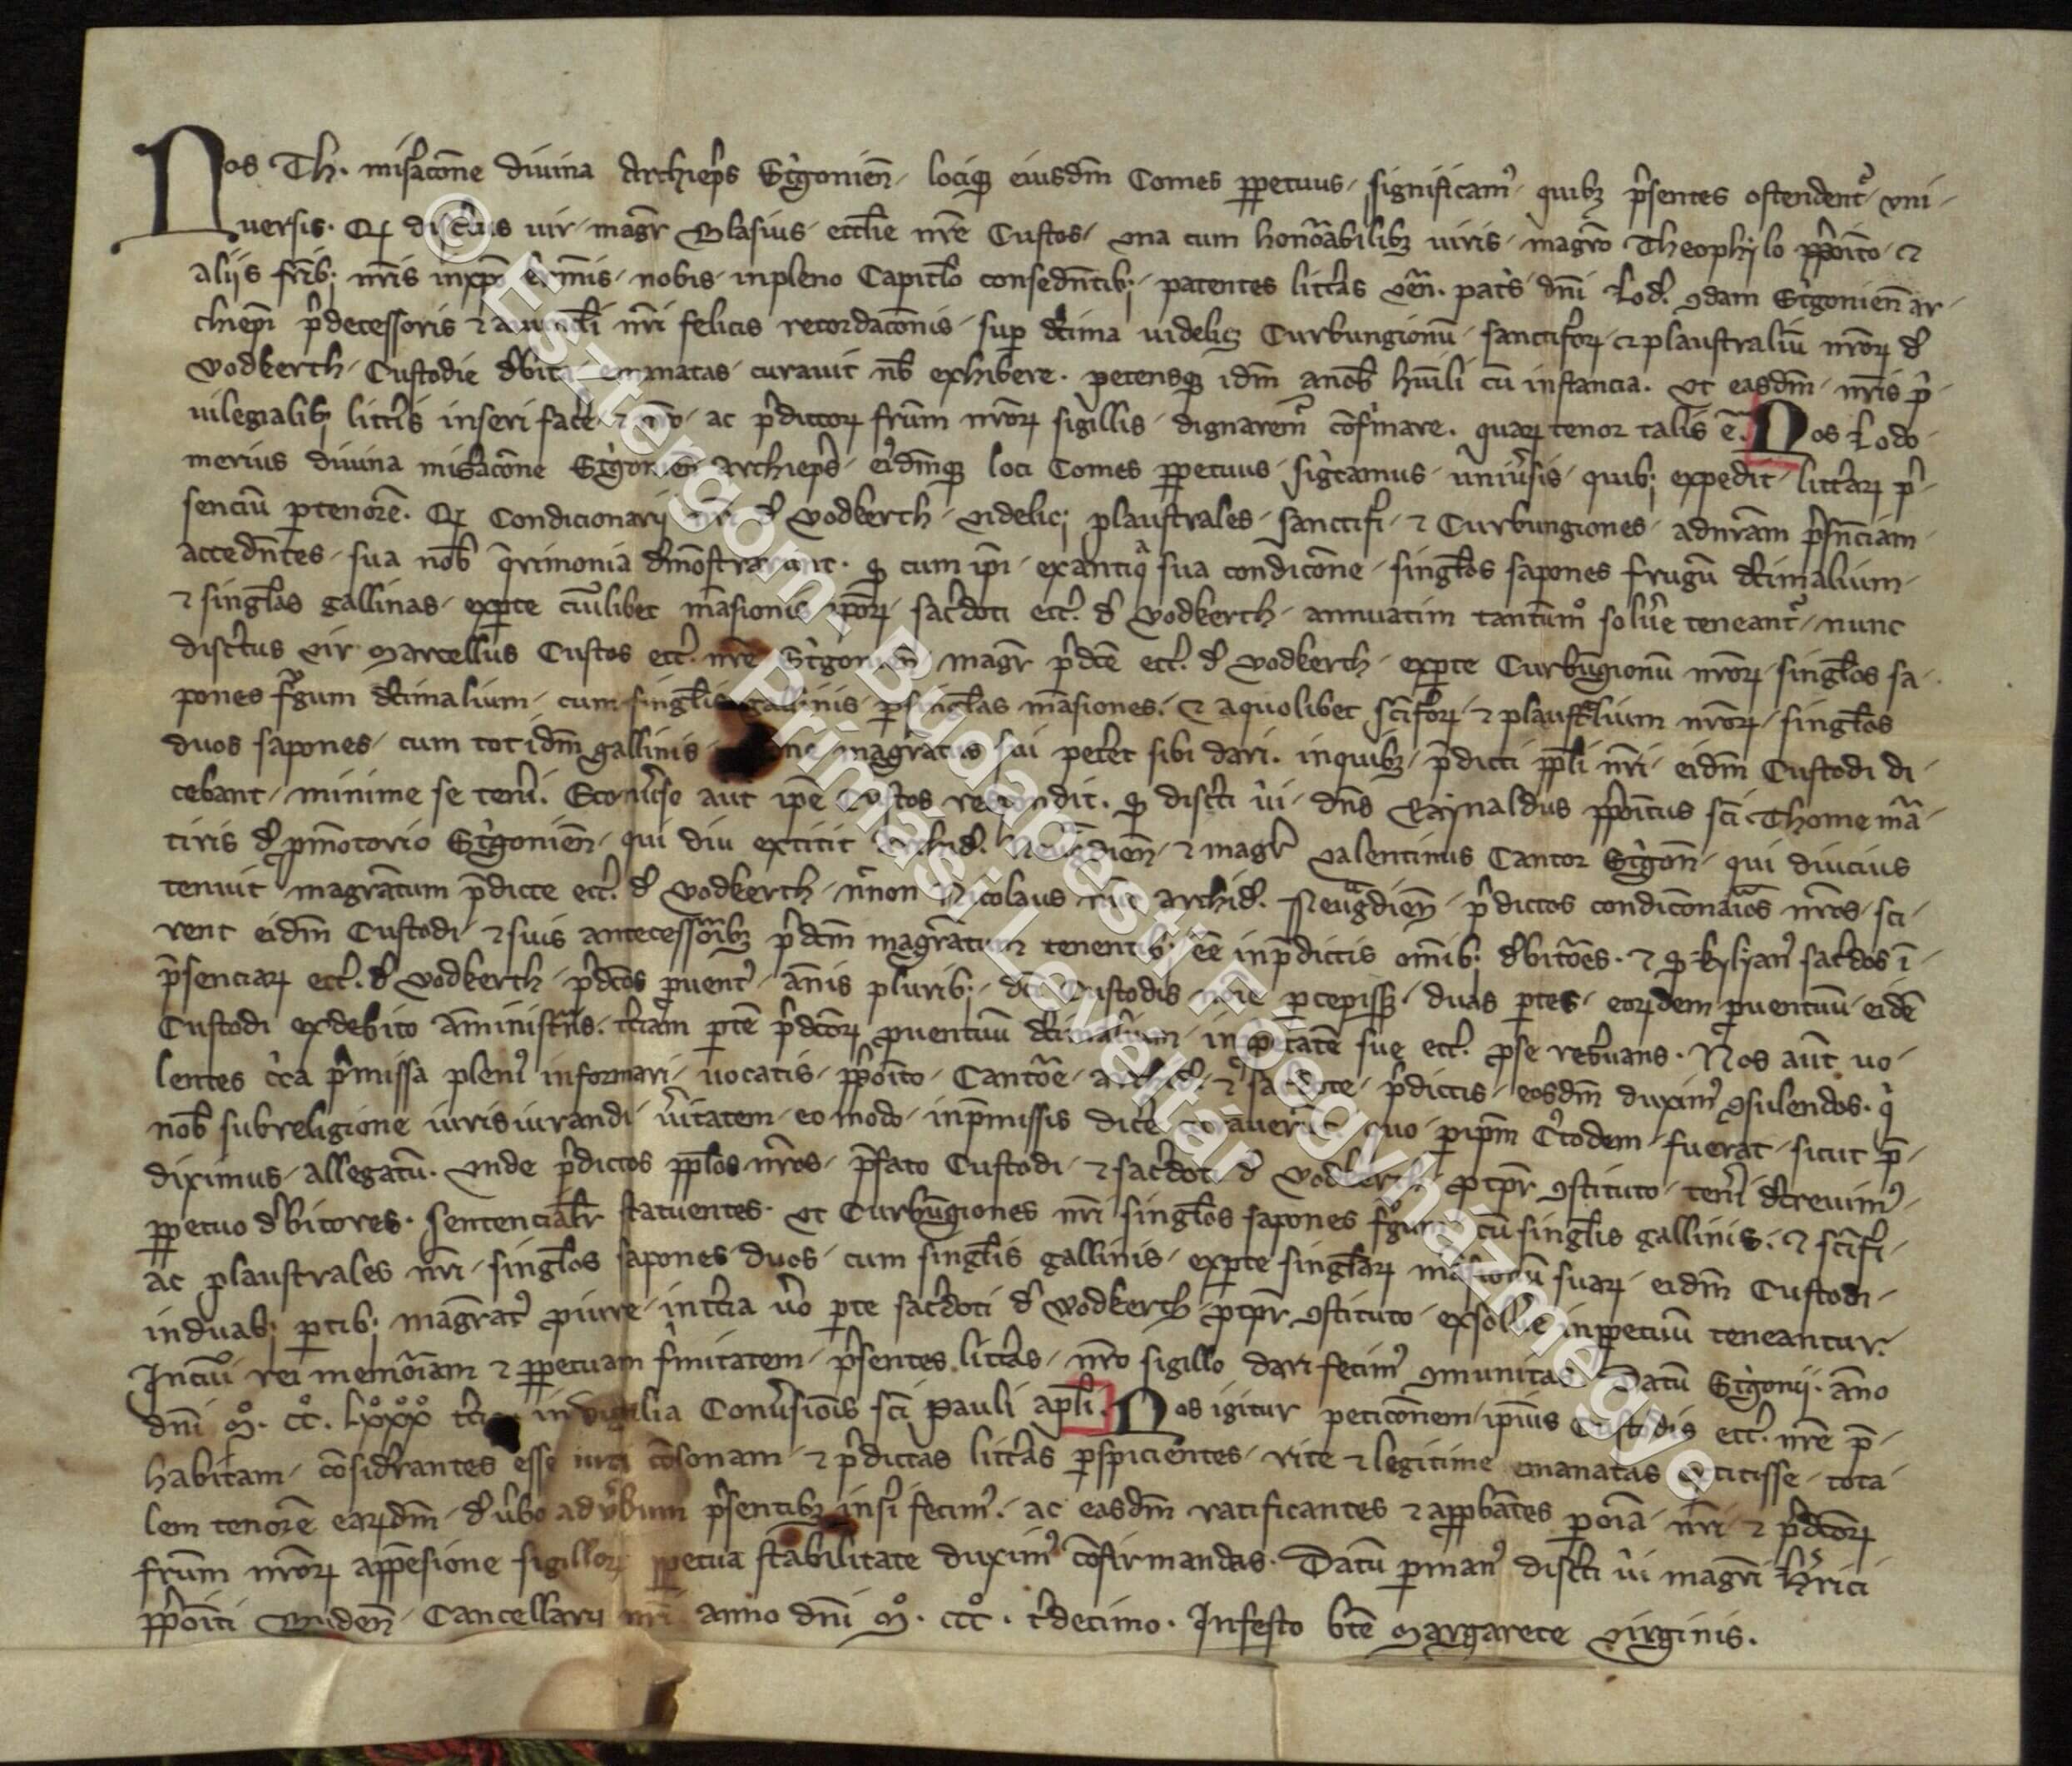 Nos Th. mis̃acõne diuina Archiep̃s Str̃igonien̄. lociq3 eiusdm̃ Comes ꝑpetuus. significam᾿ quib3 p̃sentes ostendent᷑. vni-
uersis. Qꝫ disc̃tus uir. magr̃ Blasius. eccl̃ie nr̃e Custos. vna cum hono᷑abilib3 uiris. magr̃o Theophylo p̃poĩto. ⁊
aliis fr̃ib; nr̃is inxp̃o k̃rimis. nobis. inpleno Capitl̃o consedñtib;. patentes litt̃as ven̄. pat̃s dñi Lod̃. ꝯdam Str̃igonien̄ ar-
chiep̃i p̃decessoris ⁊ auunc̃li nr̃i felicis recordacõnis. sup̱ decima uidelic3 Curbungionũ. sanctifor̃ꝝ ⁊ plaustraliũ nr̃oꝝ d̃
vodkerth. Custodie d̃bita emanatas. curauit nob̃ exhibere. petensq3 idm̃ anob̃ hũili cũ instancia. vt easdm̃. nr̃is p̃-
uilegialib; litt̃is inseri fac̃e. ⁊ nr̃o. ac p̃dictoꝝ fr̃um nr̃oꝝ sigillis. dignarem᷑ cõfirmare. quaꝝ tenor talis ẽ. Nos Lodo-
merius diuina mis̃acõne Str̃igonien̄ archiep̃s. eiusdm̃q3 loci Comes ꝑpetuus. sig᷑camus. uniũsis. quib; expedit. litt̃aꝝ p̃-
senciũ ꝑtenorẽ. Qꝫ Condicionarij nr̃i d̃ vodkerth. videlic; plaustrales. sanctifi̾. ⁊ Curbungiones. adnr̃am p̃sñciam
accedñtes. sua nob̃ q̃rimonia dm̃ostrarunt. ꝙ cum ip̃i. exantiqᵃ sua condicõne. singl̃os sapones frugũ decimalium.
⁊ singl̃as gallinas. exꝑte cuil̾ibet mãsionis ip̃oꝝ. sac̃doti ecc̃. d̃ vodkerth. annuatim tantũmͦ solũe teneant᷑. nunc
disc̃tus vir Marcellus Custos ecc̃. nr̃e Str̃igonien̄ magr̃ p̃dc̃e ecc̃. d̃ vodkerth. exꝑte Curbũgionũ nr̃oꝝ. singl̃os sa-
pones fᷣgum decimalium. cum singl̃is gallinis. ꝑsingl̃as mãsiones. ⁊ aquolibet sc̃ifor̃ꝝ. ⁊ plaustᷓlium nr̃oꝝ. singl̃os
duos sapones. cum totidm̃ gallinis ne magr̃atus sui pet̃et sibi dari. inquib3. p̃dicti pp̃li nr̃i. eidm̃ Custodi di-
cebant. minime se tenẽi. Econũso aut̃ ip̃e Custos respondit. ꝙ disc̃ti ũi. dñs Raynaldus p̃poĩtus sc̃i Thome mãr-
tiris d̃ ꝓmõtorio Str̃igonien̄. qui diu extitit Archid̃. Neugᵃdien̄. ⁊ magr̃ Valentinus Cantor Str̃igon̄. qui diucius
tenuit magr̃atum p̃dicte ecc̃. d̃ vodkerth. n̾non Nicolaus nũc archid̃. Neugᵃdien̄. p̃dictos condicõnaios nr̃os. sci-
rent eidm̃ Custodi. ⁊ suis antecessorib3 p̃dcm̃ magr̃atum tenentib;. eẽ inp̃dictis om̃ib; d̃bitõres. ⁊ ꝙ kylyan᾿ sac̃dos ĩ-
p̃senciaꝝ ecc̃. d̃ vodkerth. p̃dc̃os ꝓuent᾿. ãnis plurib;. dc̃i Custodis noĩe ꝑcepiss3. duas ꝑtes. eoꝝdem ꝓuentuũ. eidẽ
Custodi exdebito ãministrᷓns. t̾ciam ꝑtẽ p̃dc̃oꝝ ꝓuentuũ decimaliũ. inp̱etatẽ sue ecc̃. ꝓse res̃uans. Nos aũt uo-
lentes c̾ca p̃missa pleni᾿ informari. uocatis. p̃poĩto. Cantõe. archid̃. ⁊ sac̃dote. p̃dictis. eosdm̃ duxim᾿ ꝯsulendos. qⁱ
nob̃ subreligione iurisiurandi ũitatem. eo modo. inp̃missis dic̃e curauer̃t. quo ꝑip̃m C᾿todem. fuerat. sicut p̃-
diximus. allegatũ. vnde p̃dictos pp̃los nr̃os. p̃fato Custodi. ⁊ sac̃doti d̃ vodkerth. ꝓtp̃r ꝯstituto. tenẽi decreuim᾿.
ꝑpetuo d̃bitores. sentencialr̃ statuentes. vt Curbũgiones nr̃i singl̃os sapones fᷣgum cũ singl̃is gallinis. ⁊ sc̃ifi̾.
ac plaustrales nr̃i. singl̃os sapones duos. cum singl̃is gallinis. exꝑte singl̃aꝝ mãsionũ suaꝝ. eidm̃ Custodi.
induab; ꝑtib; magr̃at᾿ ꝓiure. int̾cia ũo ꝑte sac̃doti d̃ vodkerth. ꝓtp̃r ꝯstituto. exsolũe inꝑpetuũ teneantur.
Incui᾿ rei memo᷑iam ⁊ ꝑpetuam fⁱmitatem. p̃sentes litt̃as. nr̃o sigillo dari fecim᾿ ꝯmunitas. Datũ Str̃igonij. ãno
dñi Mͦ. CCͦ. LͦXͦXͦXͦ t̾cio in vigilia Conũsiõis sc̃i Pauli ap̃li. Nos igitur peticõnem. ip̃ius Custodis ecc̃. nr̃e p̃-
habitam. cõsid̃rantes esse iuri cõsonam. ⁊ p̃dictas litt̃as ꝑspicientes. rite ⁊ legitime emanatas extitisse. tota-
lem tenorẽ eaꝝdm̃. d̃ ũbo ad ũbum p̃sentib3 insⁱ fecim᾿. ac easdm̃ ratificantes ⁊ apꝓbãtes ꝑ oĩa. nr̃i ⁊ p̃dc̃oꝝ
fr̃um nr̃oꝝ app̃esione sigilloꝝ ꝑpetua stabilitate duxim᾿ cõfirmandas. Datũ ꝑman᾿ disc̃ti ũi magr̃i Hr̃ici
p̃poĩti Buden̄. Cancellarij nr̃i anno dñi Mͦ. CCCͦ. t̾decimo. Infesto btẽ Margarete virginis.
© Esztergom-Budapesti Főegyházmegye
Prímási Levéltár